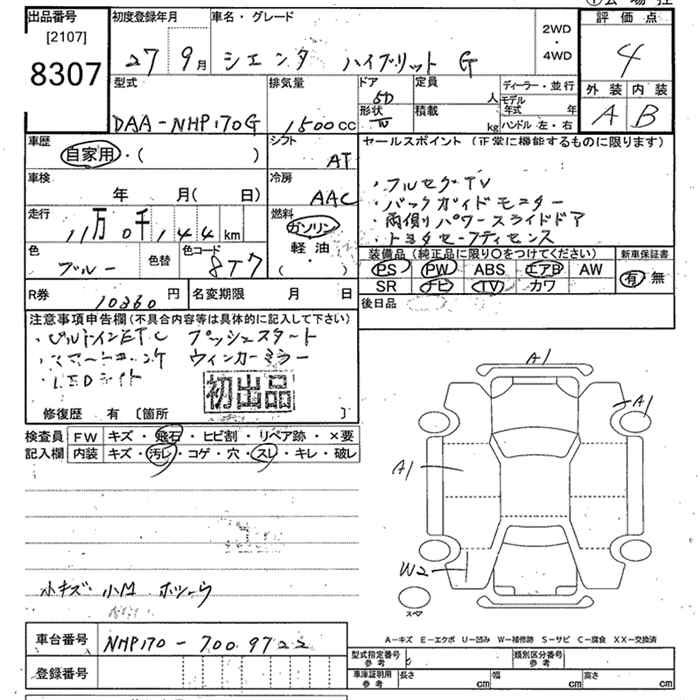 出品番号 初度登録年月 車名・グレード 公場控
[2107] 評価点
8307 27 9月 シエンタ ハイブリット G 2WD・4WD 4
型式 排気量 ドア 5D 定員 人 ディーラー・並行 外装 内装
DAA-NHP170G 1500cc 形状 積載 kg モデル年式 年 ハンドル 左・右 A B
車歴 自家用・( ) シフト AT セールスポイント (正常に機能するものに限ります)
車検 年 月( 日) 冷房 AAC ・フルセグTV
・バックガイドモニター
走行 11万0千144km 燃料 ガソリン 軽油 ・( ) ・両側パワースライドドア
・トヨタセーフティセンス
色 ブルー 色替 色コード 8T7 装備品 (純正品に限り○をつけてください) 新車保証書
PS PW ABS エアB AW 有・無
SR ナビ TV カワ
R券 10260円 名変期限 月 日 後日品
注意事項申告欄 (不具合内容等は具体的に記入して下さい)
・ビルトインETC プッシュスタート
・スマートキー2ケ ウィンカーミラー
・LEDライト 初出品
修復歴 有 〔箇所 〕
検査員 FW キズ・飛石・ヒビ割・リペア跡・×要
記入欄 内装 キズ・汚レ・コゲ・穴・スレ・キレ・破レ
A1
A1
A1
W2
小キズ 小凹
スペア
A−キズ E−エクボ U−凹み W−補修跡 S−サビ C−腐食 XX−交換済
車台番号 NHP170-7009722
型式指定番号 参考 類別区分番号 参考
登録番号 車庫証明用 参考 長さ cm 幅 cm 高さ cm